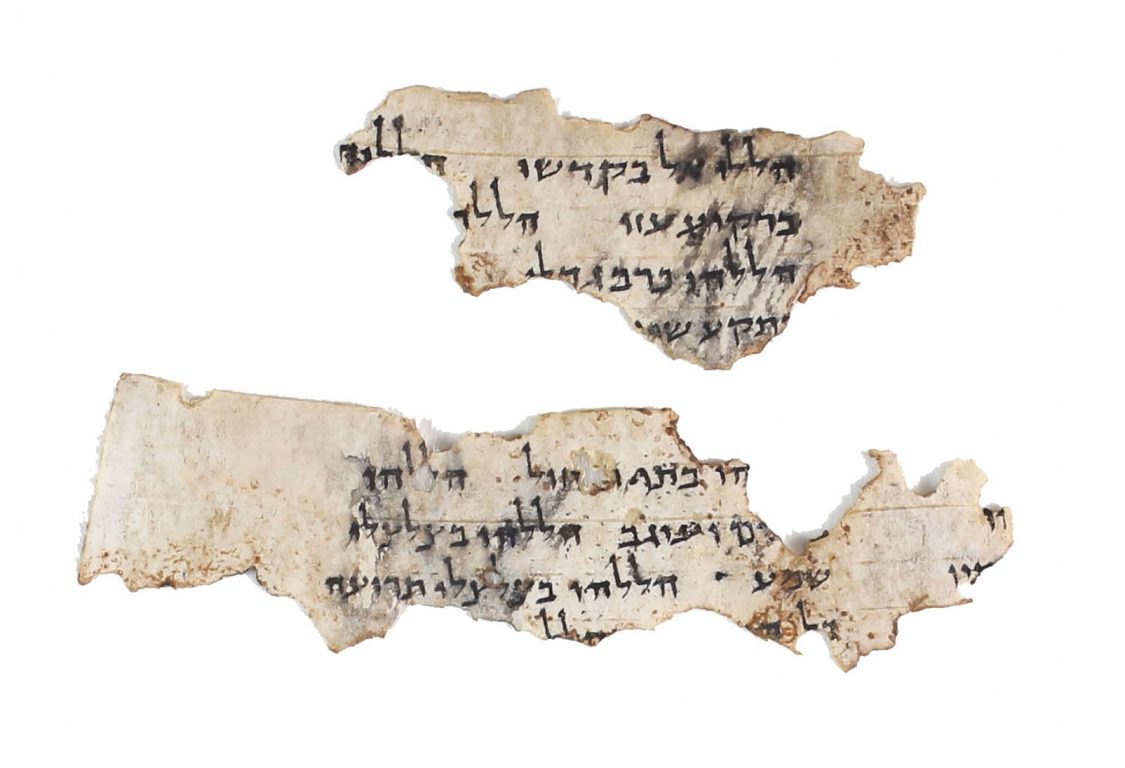 הללו אל בקדשו הללוה
ברקיע עזו הללו
הללהו כרב גדלו
תקע שו
הו בתף ומחול הללהו
ה ים ועוגב הללהו בצלצלי
שמע הללהו בצלצלי תרועה
הלל